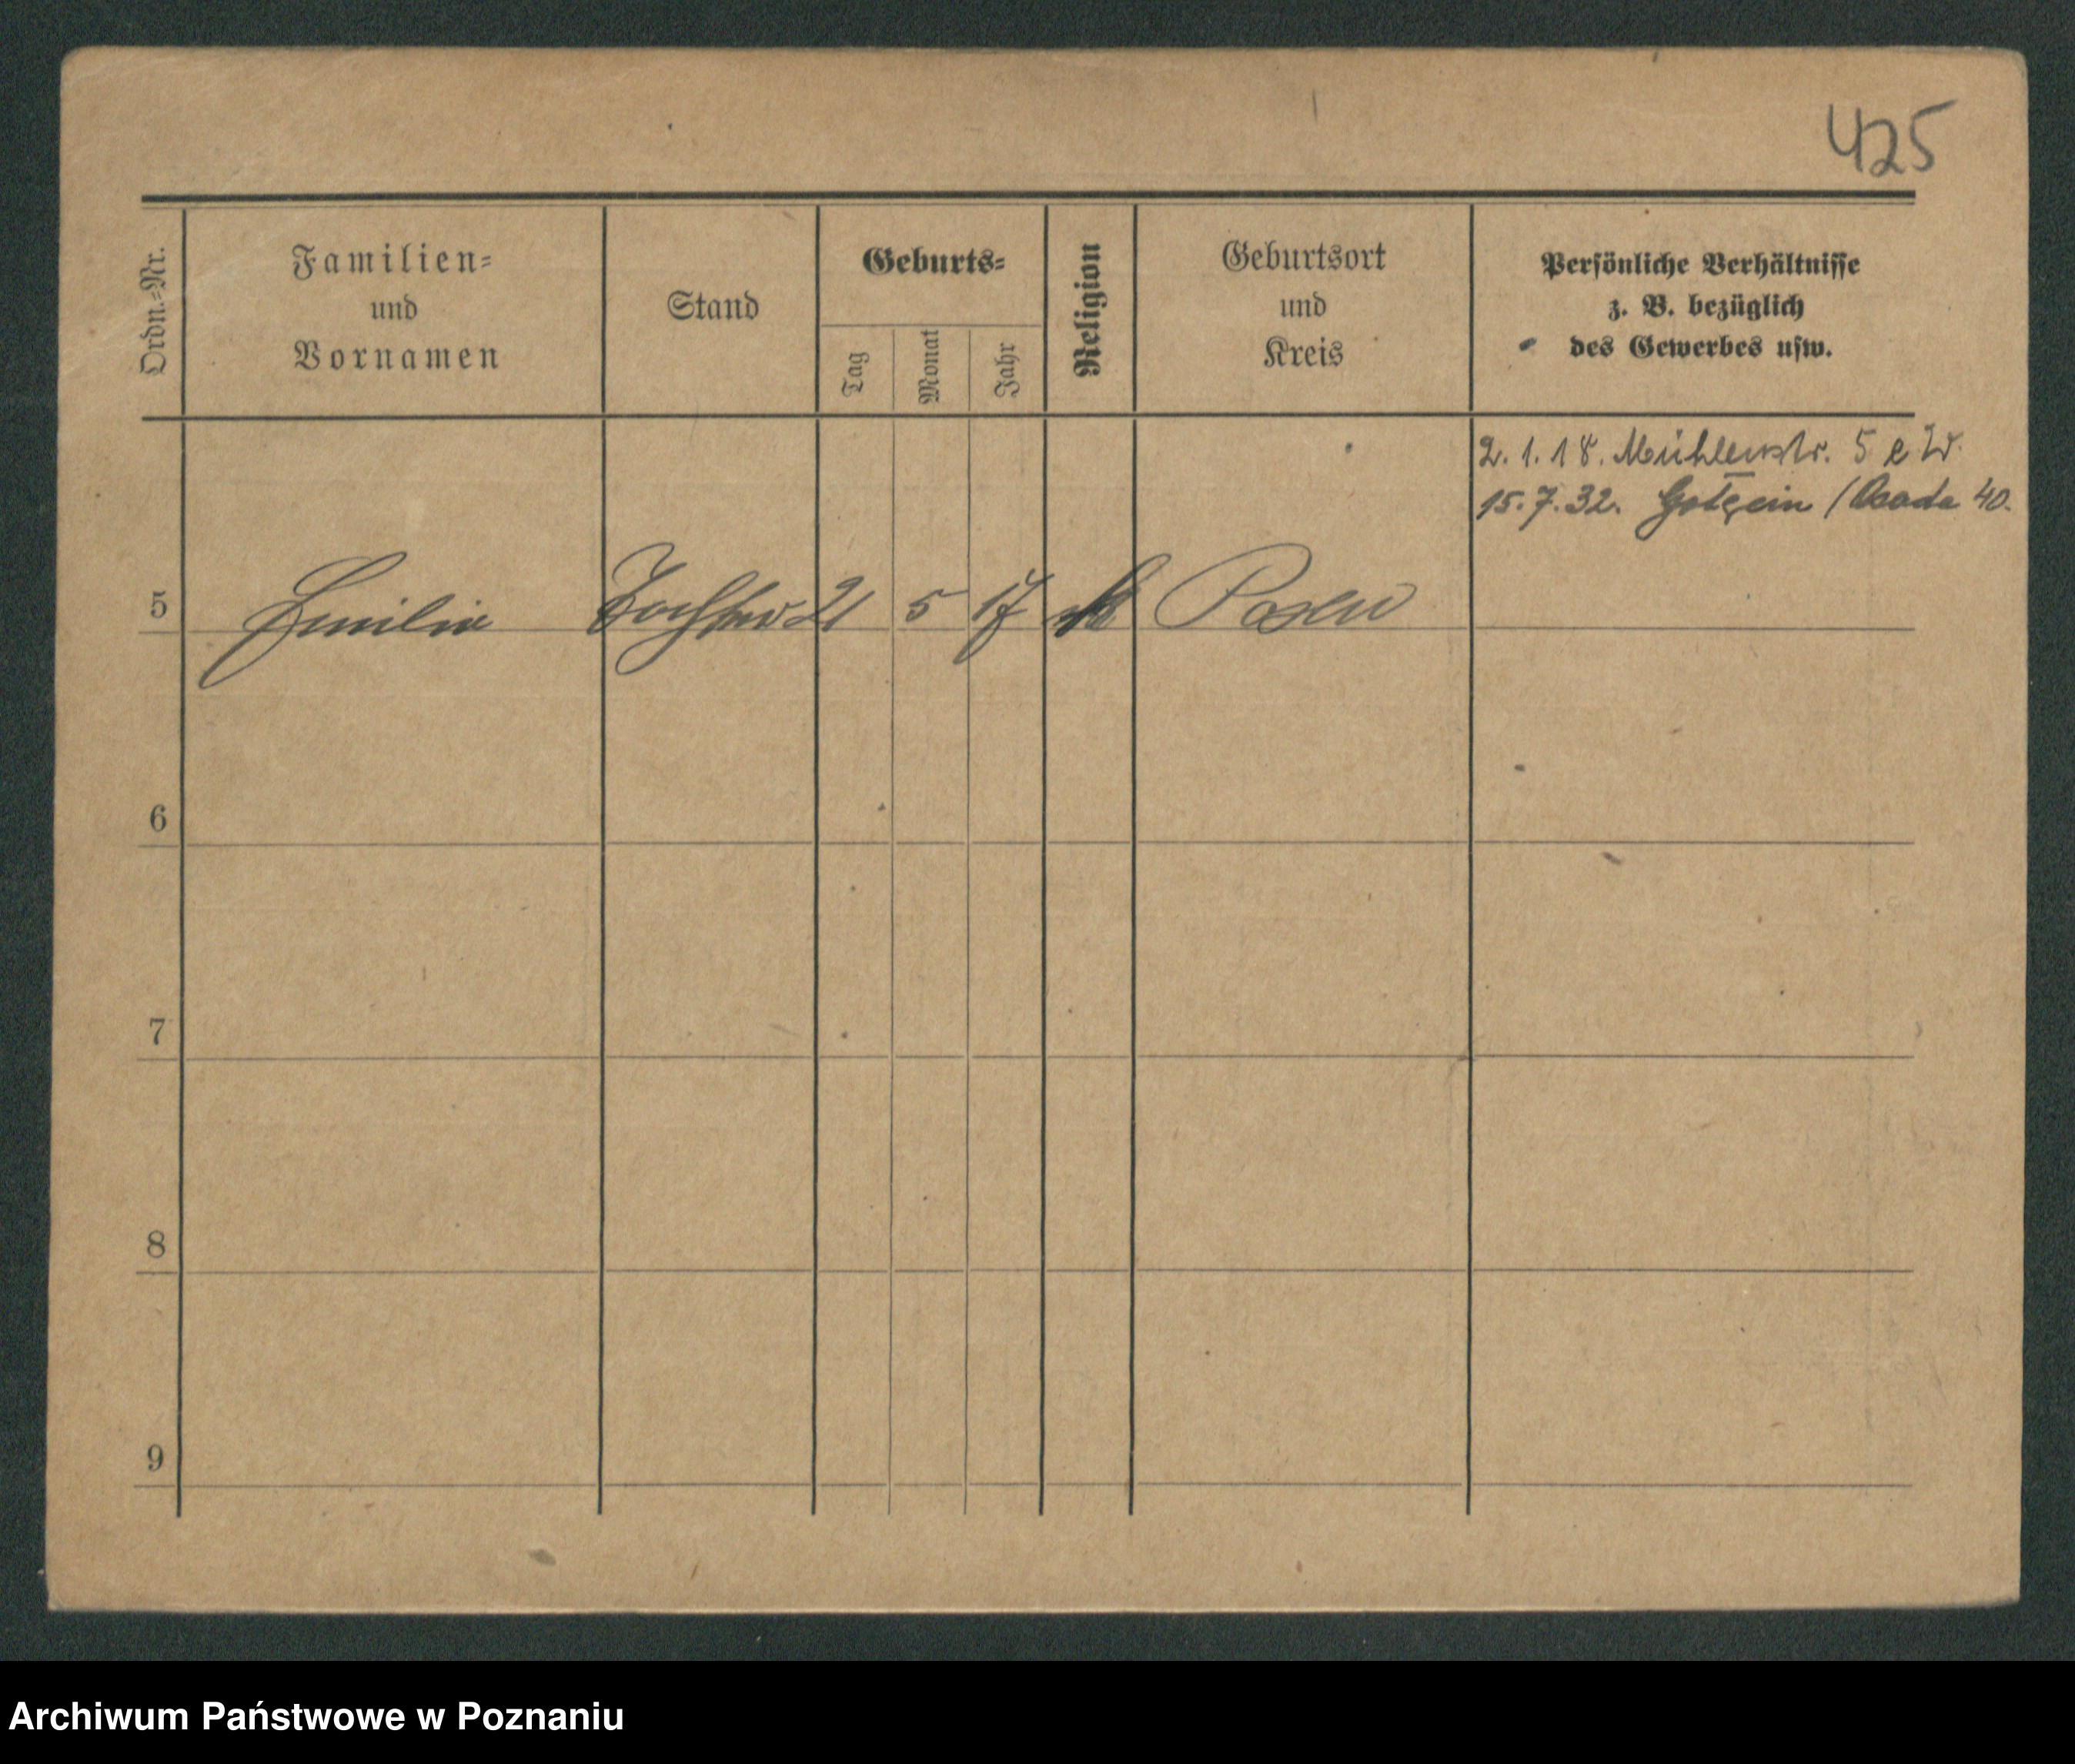 425
Ordn.-Nr.
Familien-
und
Vornamen
Stand
Geburts-
Tag
Monat
Jahr
Religion
Geburtsort
und
Kreis
Persönliche Verhältnisse
z. B. bezüglich
des Gewerbes usw.
2. 1. 18. Mühlenstr. 5
15. 7. 32. /Osada 40.
5 Emilie Tochter 21 5 17 k Posen
6
7
8
9
Archiwum Państwowe w Poznaniu